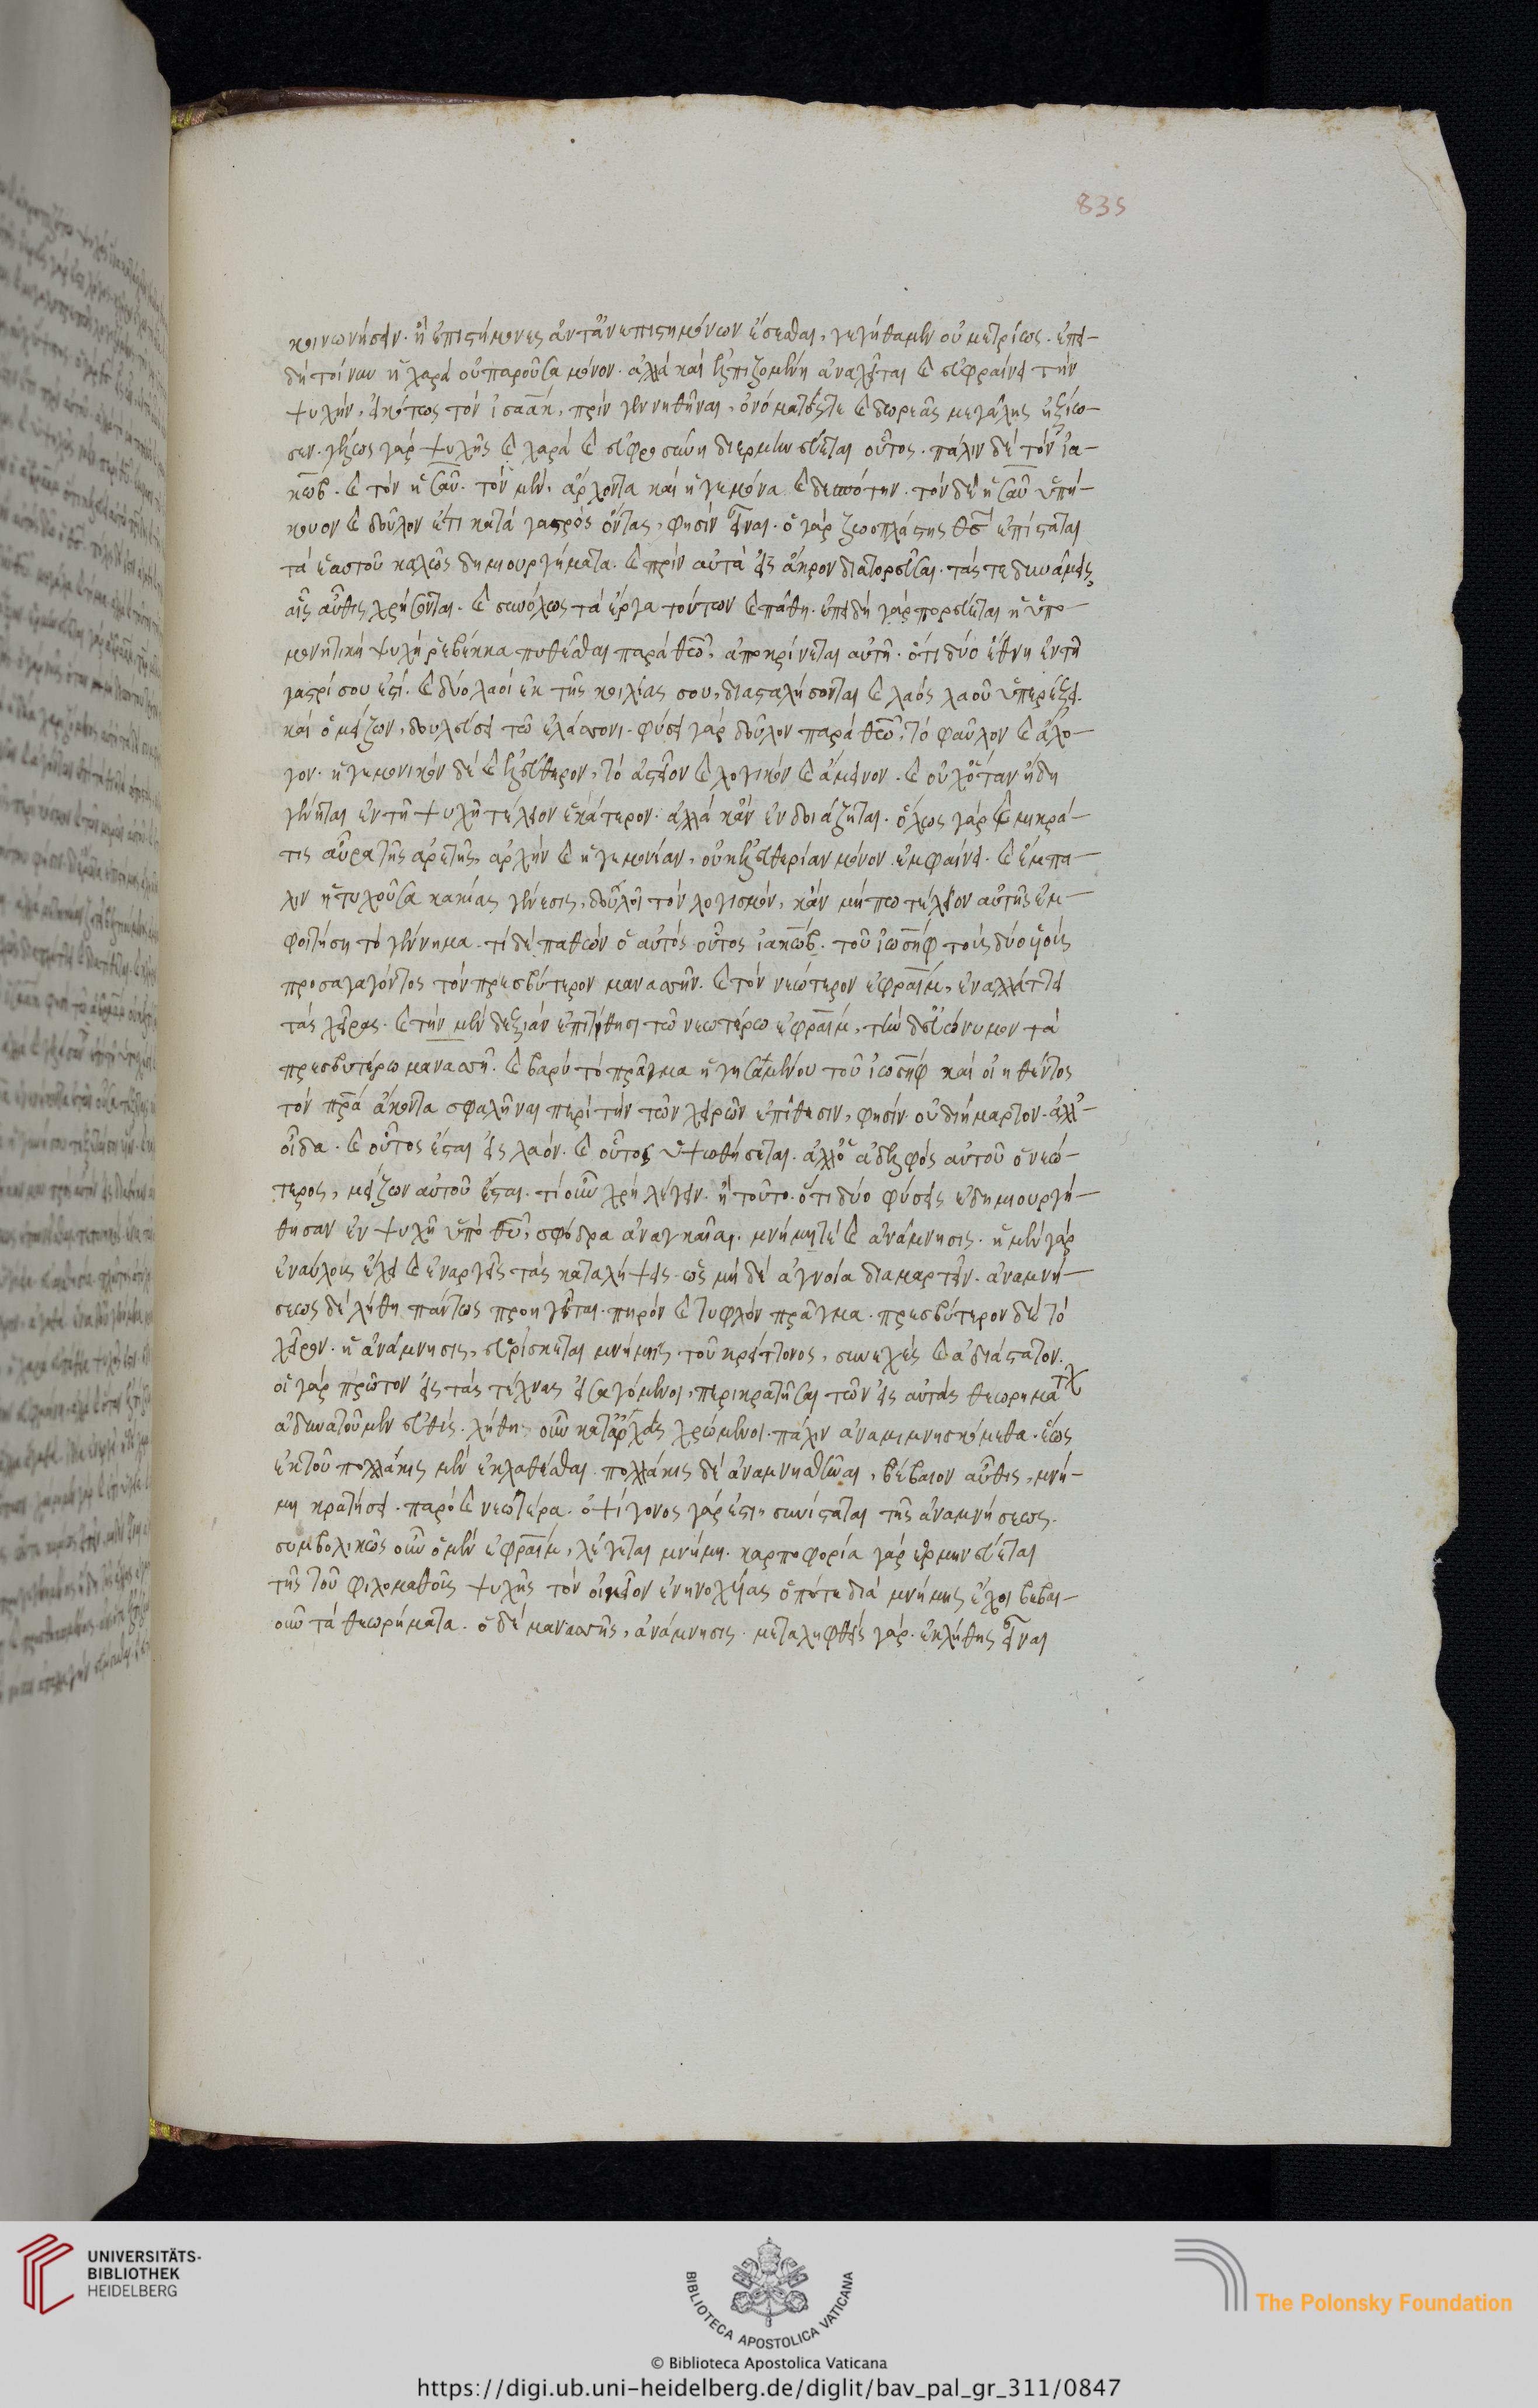 835
κοινωνήσειν· ἢ ἐπιστήμονες ἀντ᾽ ἀνεπιστημόνων ἔσεσθαι, γεγήθαμεν οὐ μετρίως. ἐπει-
δὴ τοίνυν ἡ χαρὰ οὐ παροῦσα μόνον· ἀλλὰ καὶ ἐλπιζομένη ἀναχεῖται καὶ εὐφραίνει τὴν
ψυχήν, εἰκότως τὸν ἰσαάκ, πρὶν γεννηθῆναι, ὀνόματός τε καὶ δωρεᾶς μεγάλης ἠξίω-
σεν. γέλως γὰρ ψυχῆς καὶ χαρὰ καὶ εὐφροσύνη διερμηνεύεται οὗτος. πάλιν δὲ τὸν ἰα-
κώβ. καὶ τὸν ἠσαῦ. τὸν μὲν, ἄρχοντα καὶ ἡγεμόνα καὶ δεσπότην. τὸν δὲ ἠσαῦ ὑπή-
κουον καὶ δοῦλον ἔτι κατὰ γαστρὸς ὄντας, φησὶν εἶναι. ὁ γὰρ ζωοπλάστης θς ἐπίσταται
τὰ ἑαυτοῦ καλῶς δημιουργήματα. καὶ πρὶν αὐτὰ εἰς ἄκρον διατορεῦσαι. τάς τε δυνάμεις
αἷς αὖθις χρήσονται. καὶ συνόλως τὰ ἔργα τούτων καὶ πάθη. ἐπειδὴ γὰρ πορεύεται ἡ ὑπο-
μονητικὴ ψυχὴ ῥεβέκκα πυθέσθαι παρὰ θεοῦ, ἀποκρίνεται αὐτῇ. ὅτι δύο ἔθνη ἐν τῇ
γαστρί σου ἐστί. καὶ δύο λαοὶ ἐκ τῆς κοιλίας σου, διασταλήσονται καὶ λαὸς λαοῦ ὑπερέξει.
καὶ ὁ μείζων, δουλεύσει τῷ ἐλάσσονι. φύσει γὰρ δοῦλον παρὰ θεῷ, τὸ φαῦλον καὶ ἄλο-
γον. ἡγεμονικὸν δὲ καὶ ἐλεύθερον, τὸ ἀστεῖον καὶ λογικὸν καὶ ἄμεινον. καὶ οὐχ ὅταν ἤδη
γένηται ἐν τῇ ψυχῇ τέλειον ἑκάτερον. ἀλλὰ κἂν ἐνδοιάζηται. ὅλως γὰρ καὶ μικρά-
τις αὔρα τῆς ἀρετῆς, ἀρχὴν καὶ ἡγεμονίαν, οὐκ ἐλευθερίαν μόνον ἐμφαίνει. καὶ ἔμπα-
λιν ἡ τυχοῦσα κακίας γένεσις, δουλοῖ τὸν λογισμόν, κἂν μήπω τέλειον αὐτῆς ἐκ-
φοιτήσῃ τὸ γέννημα. τί δὲ παθὼν ὁ αὐτὸς οὗτος ἰακώβ. τοῦ ἰωσὴφ τοὺς δύο ὑιοὺς
προσαγαγόντος τὸν πρεσβύτερον μανασσῆν. καὶ τὸν νεώτερον ἐφραΐμ, ἐναλλάττει
τὰς χεῖρας. καὶ τὴν μὲν δεξιὰν ἐπιτίθησι τῷ νεωτέρω ἐφραΐμ, τὴν δ᾽ εὐώνυμον τῷ
πρεσβυτέρω μανασσῇ. καὶ βαρὺ τὸ πρᾶγμα ἡγησαμένου τοῦ ἰωσὴφ καὶ οἰηθέντος
τὸν πρα ἄκοντα σφαλῆναι περὶ τὴν τῶν χειρῶν ἐπίθεσιν, φησὶν. οὐ διήμαρτον. ἀλλ᾽
οἶδα. καὶ οὗτος ἔσται εἰς λαόν. καὶ οὗτος ὑψωθήσεται. ἀλλ᾽ ὁ ἀδελφὸς αὐτοῦ ὁ νεώ-
τερος, μείζων αὐτοῦ ἔσται. τί οὖν χρὴ λέγειν. ἢ τοῦτο. ὅτι δύο φύσεις ἐδημιουργή-
θησαν ἐν ψυχῇ ὑπὸ θυ, σφόδρα ἀναγκαῖαι. μνήμη τὲ καὶ ἀνάμνησις. ἡ μὲν γὰρ
ἐναύλους ἔχει καὶ ἐναργεῖς τὰς καταλήψεις. ὡς μὴ δὲ ἀγνοία διαμαρτεῖν. ἀναμνή-
σεως δὲ λήθη πάντως προηγεῖται. πηρὸν καὶ τυφλὸν πρᾶγμα. πρεσβύτερον δὲ τὸ
χεῖρον. ἡ ἀνάμνησις, εὑρίσκεται μνήμης τοῦ κρείττονος, συνεχὲς καὶ ἀδιάστατον.
οἱ γὰρ πρῶτον εἰς τὰς τέχνας εἰσαγόμενοι, περικρατῆσαι τῶν εἰς αὐτὰς θεωρημάτων
ἀδυνατοῦμεν εὐθύς. λήθη οὖν κατ᾽ ἀρχὰς χρώμενοι. πάλιν ἀναμιμνησκόμεθα. ἕως
ἐκ τοῦ πολλάκις μὲν ἐκλαθέσθαι. πολλάκις δὲ ἀναμνησθῆναι, βέβαιον αὖθις, μνή-
μη κρατήσει. παρὸ καὶ νεωτέρα. ὀψίγονος γάρ ἐστι, συνίσταται τῆς ἀναμνήσεως.
συμβολικῶς οὖν ὁ μὲν ἐφραΐμ, λέγεται μνήμη. καρποφορία γὰρ ἑρμηνεύεται
τῆς τοῦ φιλομαθοῦς ψυχῆς τὸν οἰκεῖον ἐνηνοχυίας ὁπότε διὰ μνήμης ἔχοι βεβαι-
οῦν τὰ θεωρήματα. ὁ δὲ μανασσῆς, ἀνάμνησις. μεταληφθεὶς γὰρ. ἐκ λήθης εἶναι
UNIVERSITÄTS-
BIBLIOTHEK
HEIDELBERG
BIBLIOTECA APOSTOLICA VATICANA
© Biblioteca Apostolica Vaticana
The Polonsky Foundation
https://digi.ub.uni-heidelberg.de/diglit/bav_pal_gr_311/0847